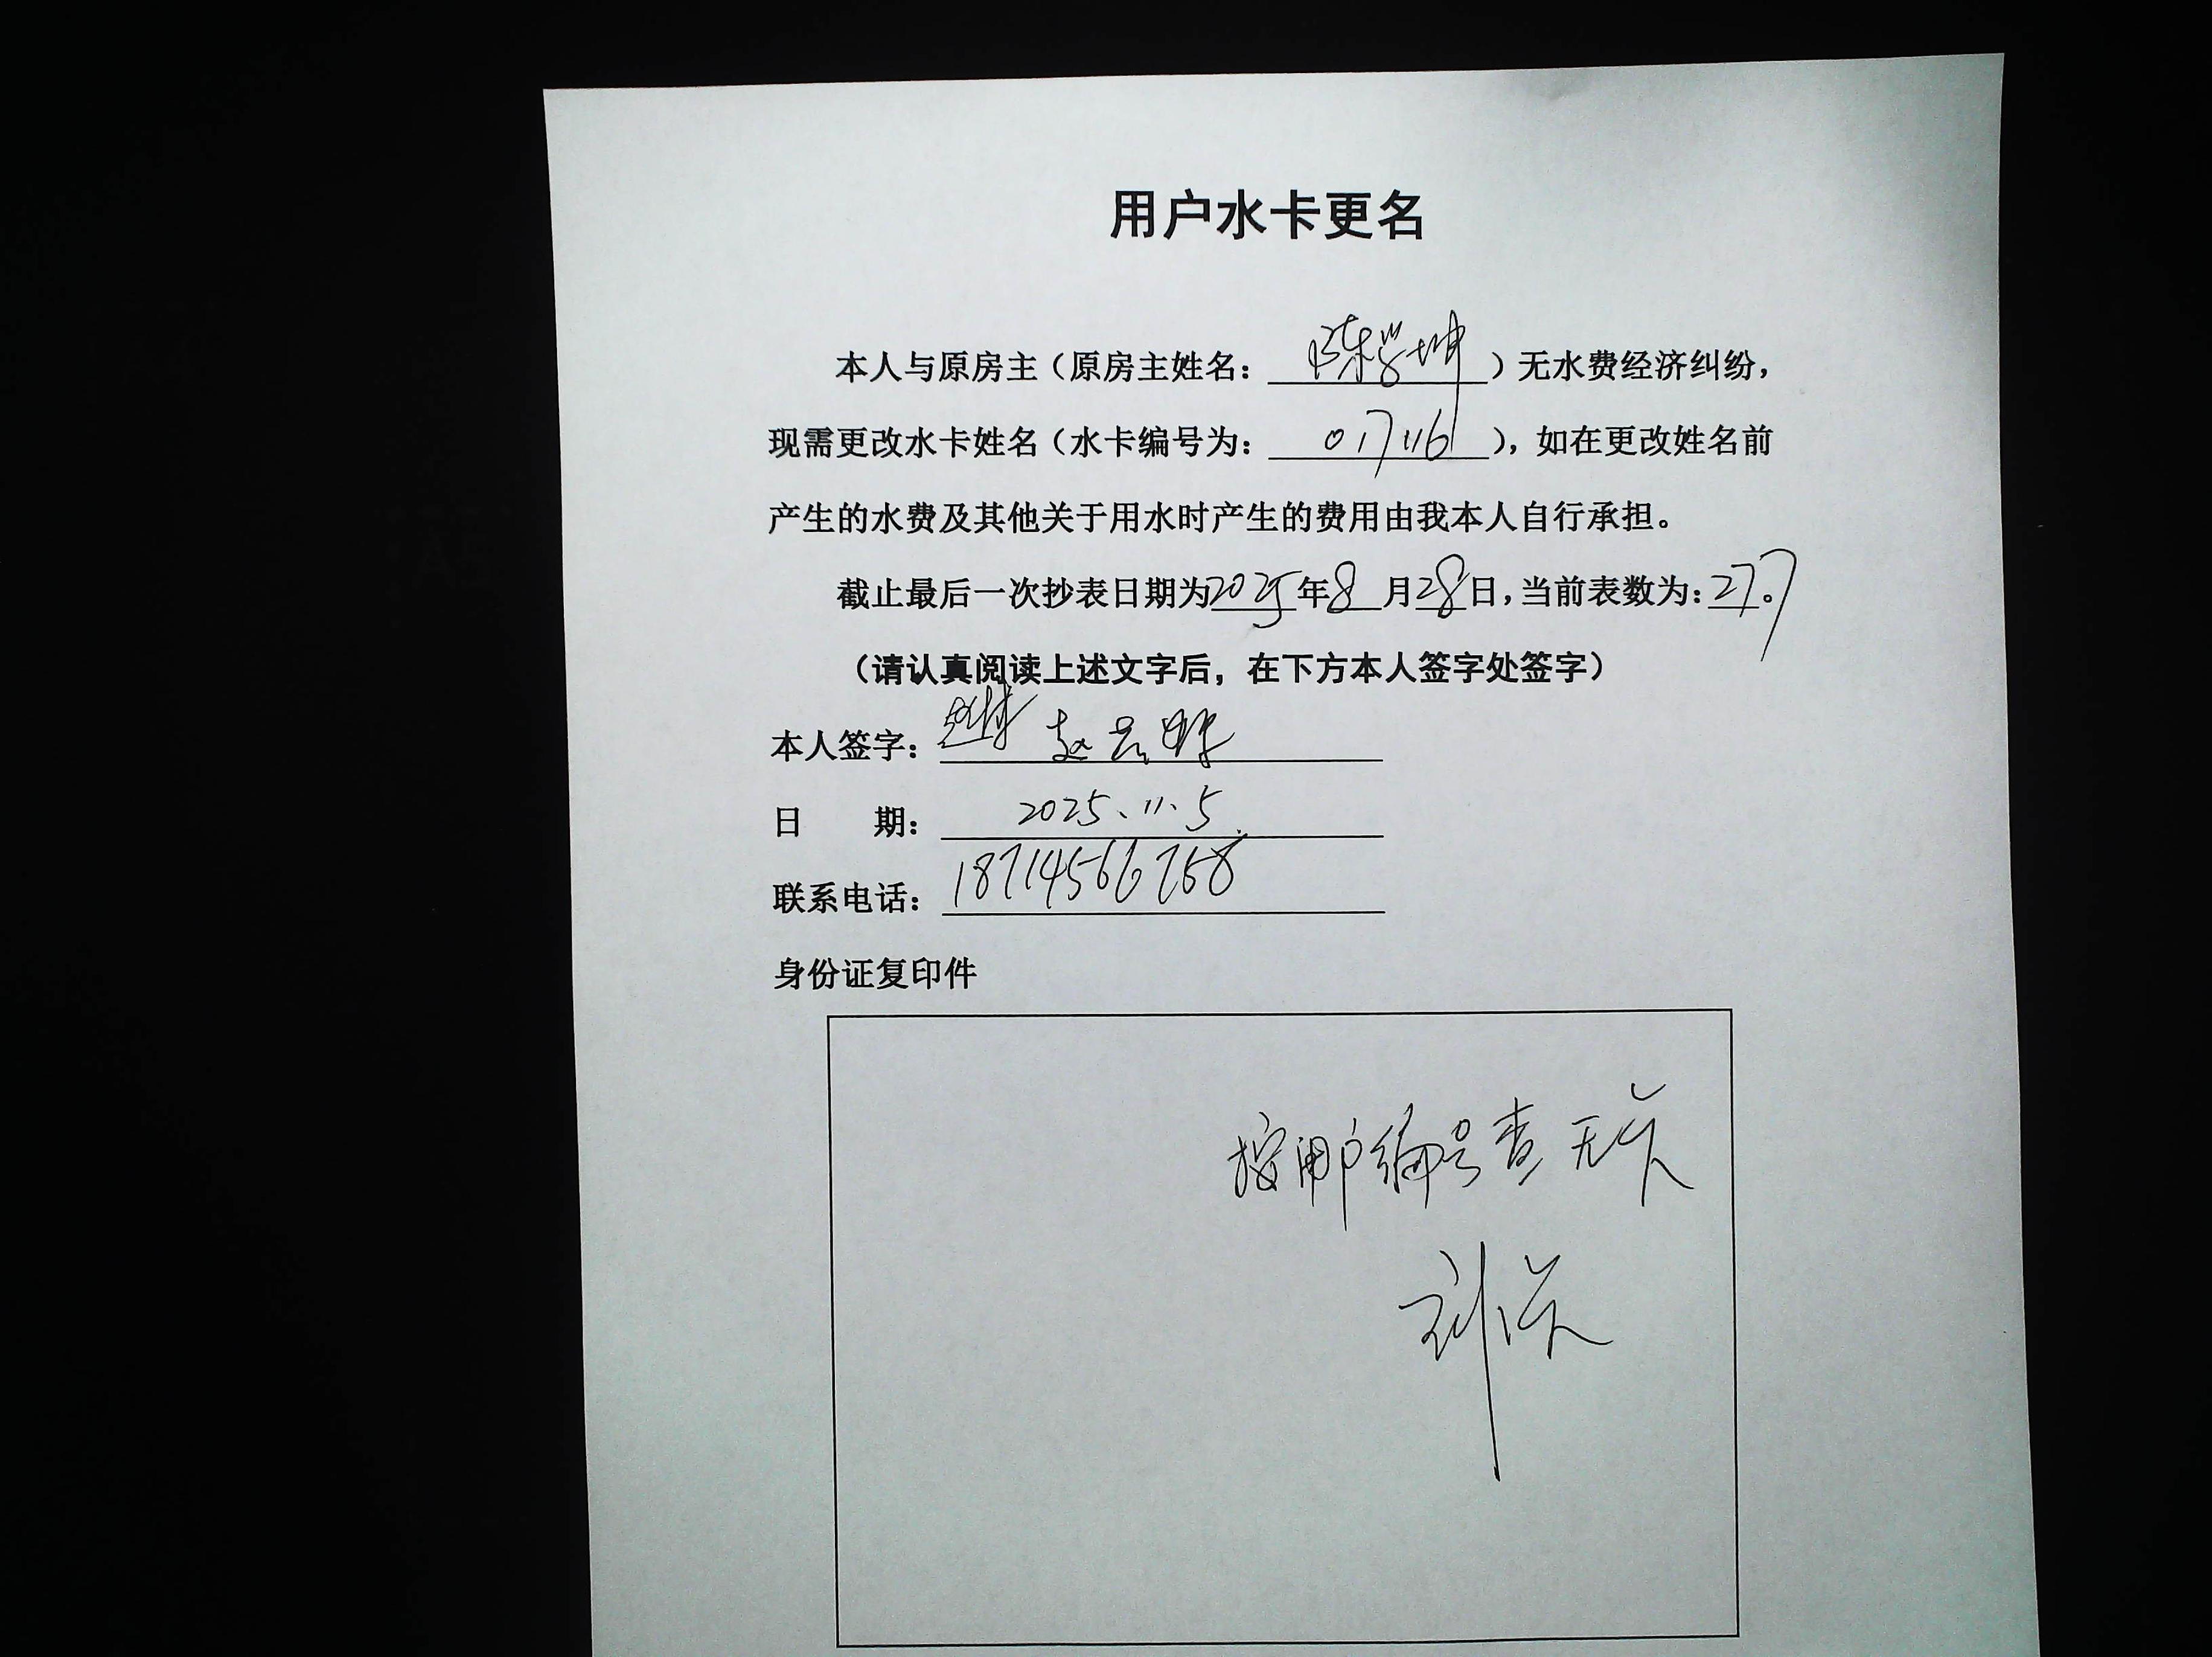 用户水卡更名
本人与原房主（原房主姓名：陈学坤）无水费经济纠纷，
现需更改水卡姓名（水卡编号为：017116），如在更改姓名前
产生的水费及其他关于用水时产生的费用由我本人自行承担。
截止最后一次抄表日期为2025年8月28日，当前表数为：277。
（请认真阅读上述文字后，在下方本人签字处签字）
本人签字：赵云
日 期：2025、11、5
联系电话：18714566758
身份证复印件
按用户编号查无
刘